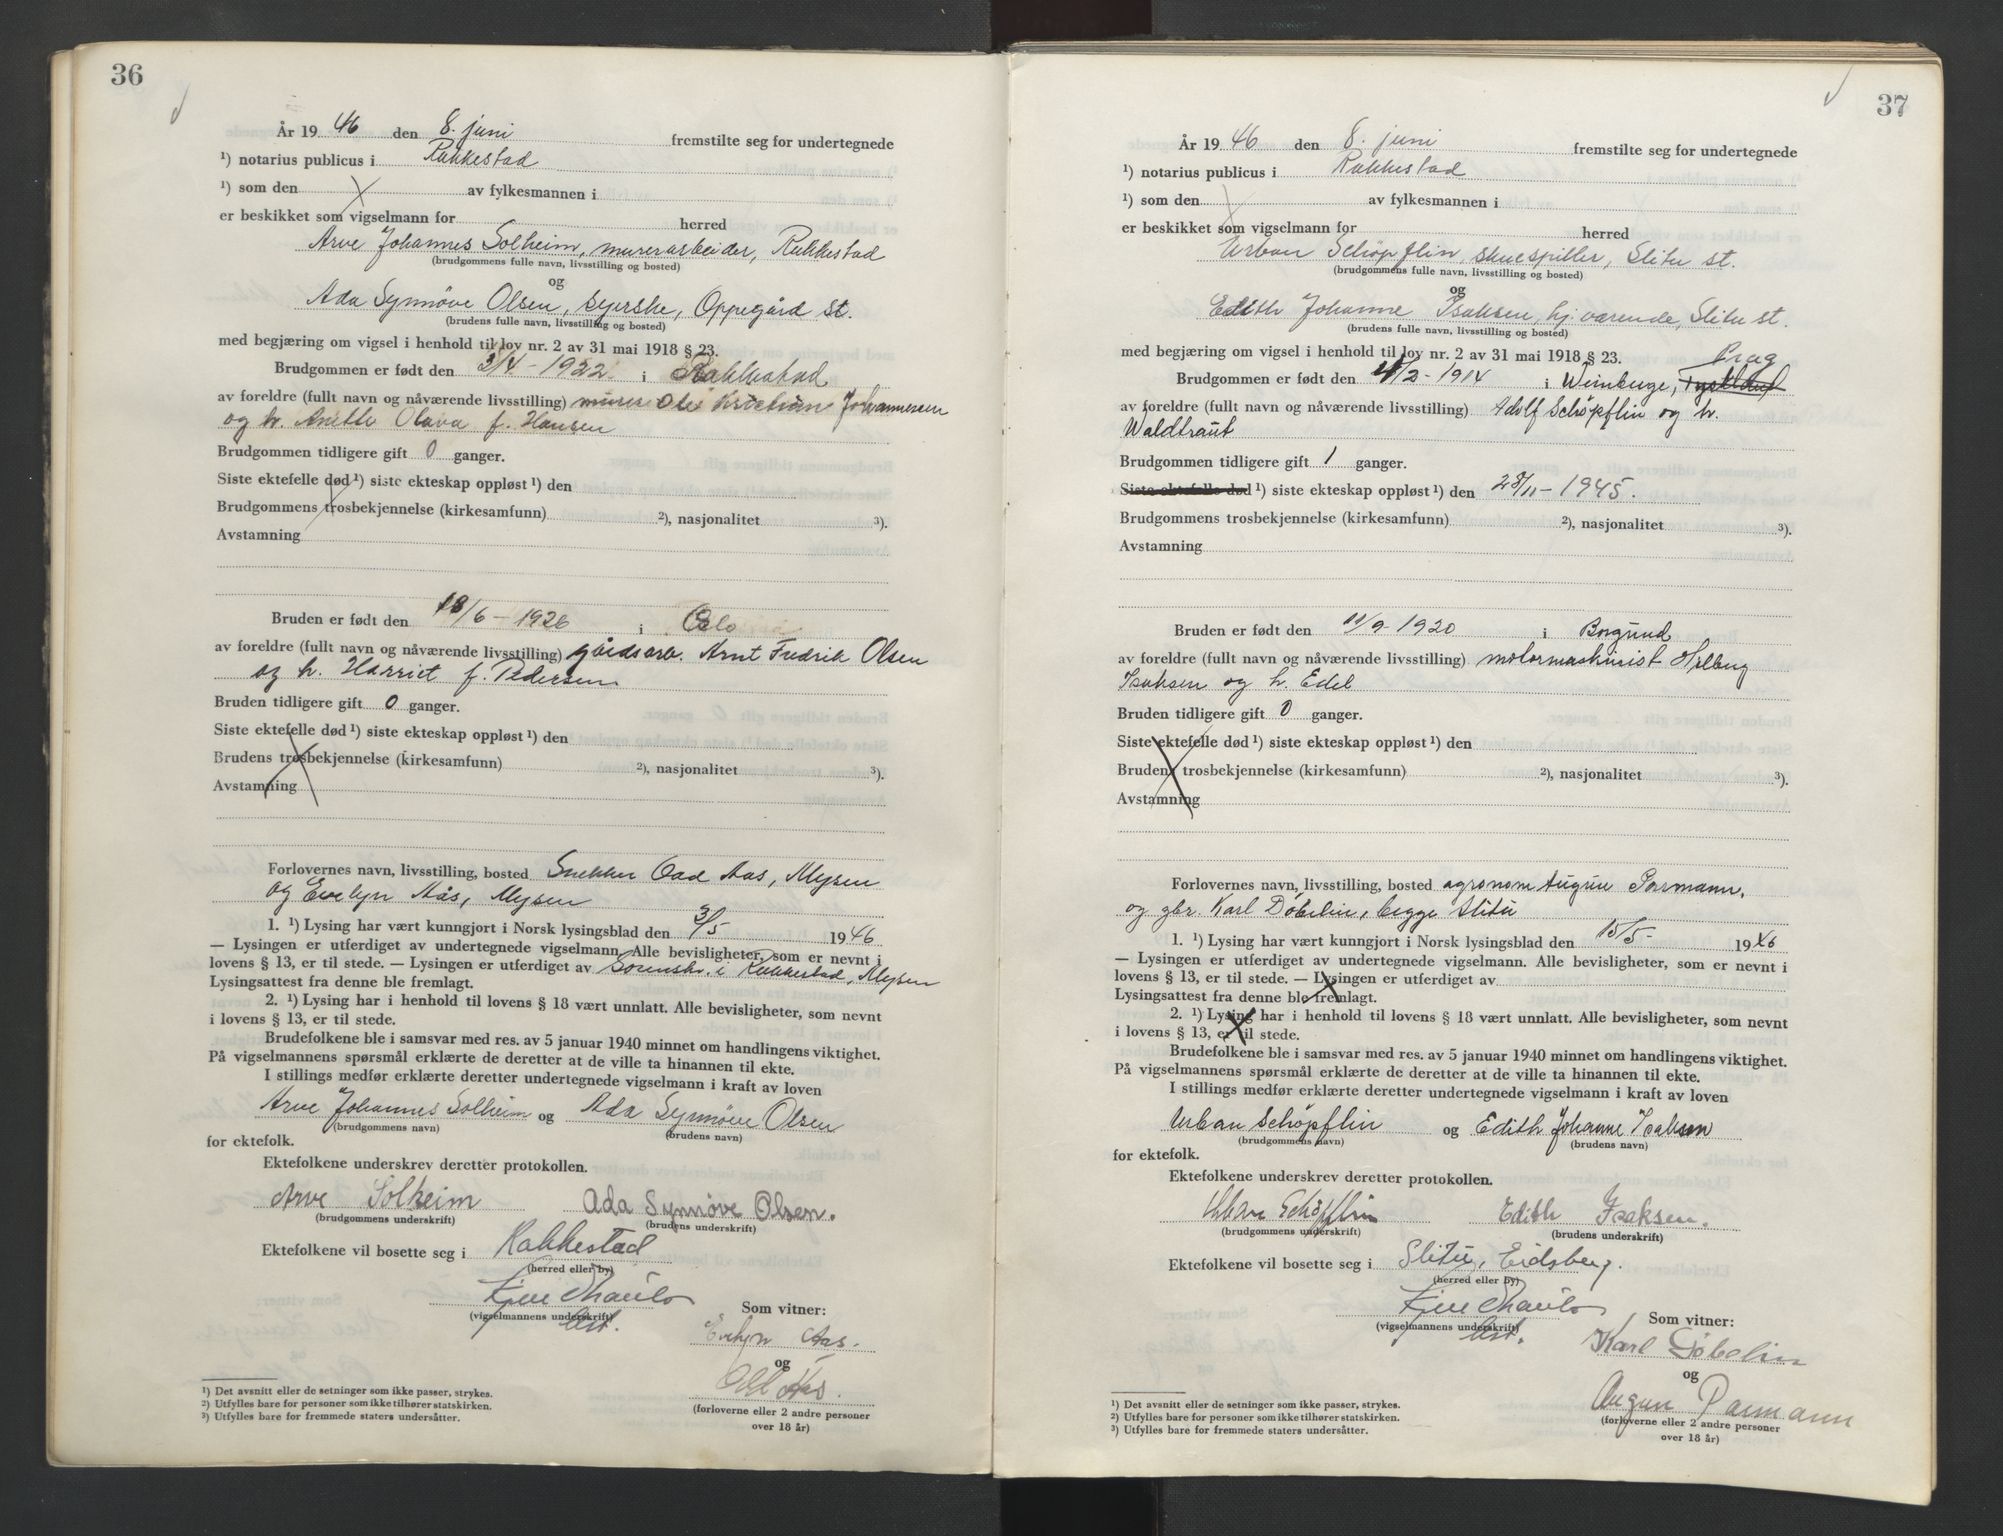 36
År 19 46 den 8. juni fremstilte seg for undertegnede
¹) notarius publicus i Rakkestad
¹) som den av fylkesmannen i
er beskikket som vigselmann for herred
Arve Johannes Solheim, murerarbeider, Rakkestad
(brudgommens fulle navn, livsstilling og bosted)
og
Ada Synnöve Olsen, syerske, Oppegård st.
(brudens fulle navn, livsstilling og bosted)
med begjæring om vigsel i henhold til lov nr. 2 av 31 mai 1918 § 23.
Brudgommen er født den 2/4 - 1922 i Rakkestad
av foreldre (fullt navn og nåværende livsstilling) murer Ole Kristian Johannessen
og h. Anette Olava f. Hansen
Brudgommen tidligere gift 0 ganger.
Siste ektefelle død ¹) siste ekteskap oppløst ¹) den
Brudgommens trosbekjennelse (kirkesamfunn) ²), nasjonalitet ³).
Avstamning
Bruden er født den 18/6 - 1926 i Oslo
av foreldre (fullt navn og nåværende livsstilling) gårdsarb. Arnt Fredrik Olsen
og h. Harriet f. Pedersen
Bruden tidligere gift 0 ganger.
Siste ektefelle død ¹) siste ekteskap oppløst ¹) den
Brudens trosbekjennelse (kirkesamfunn) ²), nasjonalitet ³).
Avstamning
Forlovernes navn, livsstilling, bosted Snekker Odd Aas, Mysen
og Evelyn Aås, Mysen
1. ¹) Lysing har vært kunngjort i Norsk lysingsblad den 3/5 1946
— Lysingen er utferdiget av undertegnede vigselmann. Alle bevisligheter, som er nevnt i
lovens § 13, er til stede. — Lysingen er utferdiget av Sorenskr. i Rakkestad, Mysen
Lysingsattest fra denne ble fremlagt.
2. ¹) Lysing har i henhold til lovens § 18 vært unnlatt. Alle bevisligheter, som nevnt
i lovens § 13, er til stede.
Brudefolkene ble i samsvar med res. av 5 januar 1940 minnet om handlingens viktighet.
På vigselmannens spørsmål erklærte de deretter at de ville ta hinannen til ekte.
I stillings medfør erklærte deretter undertegnede vigselmann i kraft av loven
Arve Johannes Solheim og Ada Synnöve Olsen
(brudgommens navn) (brudens navn)
for ektefolk.
Ektefolkene underskrev deretter protokollen.
Arve Solheim Ada Synnöve Olsen.
(brudgommens underskrift) (brudens underskrift)
Ektefolkene vil bosette seg i Rakkestad
(herred eller by)
(vigselmannens underskrift)
Som vitner:
Evelyn Aas.
og
Odd Aas.
(forloverne eller 2 andre personer
over 18 år)
¹) Det avsnitt eller de setninger som ikke passer, strykes.
²) Utfylles bare for personer som ikke tilhører statskirken.
³) Utfylles bare for fremmede staters undersåtter.
37
År 19 46 den 8. juni fremstilte seg for undertegnede
¹) notarius publicus i Rakkestad
¹) som den av fylkesmannen i
er beskikket som vigselmann for herred
Urban Schöpflin, skuespiller, Slitu st.
(brudgommens fulle navn, livsstilling og bosted)
og
Edith Johanne Isaksen, hj.værende, Slitu st.
(brudens fulle navn, livsstilling og bosted)
med begjæring om vigsel i henhold til lov nr. 2 av 31 mai 1918 § 23.
Prag
Brudgommen er født den /2 - 1914 i Weinberge, Tyskland
av foreldre (fullt navn og nåværende livsstilling) Adolf Schöpflin og h.
Waldtraut
Brudgommen tidligere gift 1 ganger.
Siste ektefelle død ¹) siste ekteskap oppløst ¹) den 28/11 - 1945.
Brudgommens trosbekjennelse (kirkesamfunn) ²), nasjonalitet ³).
Avstamning
Bruden er født den 11/9 - 1920 i Borgund
av foreldre (fullt navn og nåværende livsstilling) motormaskinist
Isaksen og h. Edel
Bruden tidligere gift 0 ganger.
Siste ektefelle død ¹) siste ekteskap oppløst ¹) den
Brudens trosbekjennelse (kirkesamfunn) ²), nasjonalitet ³).
Avstamning
Forlovernes navn, livsstilling, bosted agronom August Parmann,
og gbr. Karl Döbelin, begge Slitu
1. ¹) Lysing har vært kunngjort i Norsk lysingsblad den 15/5- 1946
— Lysingen er utferdiget av undertegnede vigselmann. Alle bevisligheter, som er nevnt i
lovens § 13, er til stede. — Lysingen er utferdiget av
Lysingsattest fra denne ble fremlagt.
2. ¹) Lysing har i henhold til lovens § 18 vært unnlatt. Alle bevisligheter, som nevnt
i lovens § 13, er til stede.
Brudefolkene ble i samsvar med res. av 5 januar 1940 minnet om handlingens viktighet.
På vigselmannens spørsmål erklærte de deretter at de ville ta hinannen til ekte.
I stillings medfør erklærte deretter undertegnede vigselmann i kraft av loven
Urban Schöpflin og Edith Johanne Isaksen
(brudgommens navn) (brudens navn)
for ektefolk.
Ektefolkene underskrev deretter protokollen.
Urban Schöpflin Edith Isaksen.
(brudgommens underskrift) (brudens underskrift)
Ektefolkene vil bosette seg i Slitu, Eidsberg.
(herred eller by)
(vigselmannens underskrift)
Som vitner:
Karl Döbelin
og
Parmann
(forloverne eller 2 andre personer
over 18 år)
¹) Det avsnitt eller de setninger som ikke passer, strykes.
²) Utfylles bare for personer som ikke tilhører statskirken.
³) Utfylles bare for fremmede staters undersåtter.